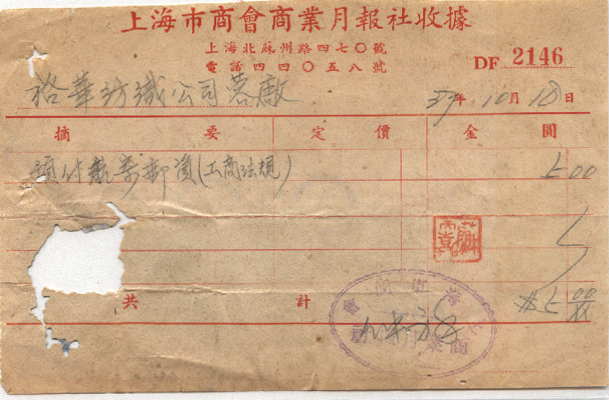 上海市商會商業月報社收據
上海北蘇州路四七〇號
電話四四〇五八號
DF 2146
裕華紡織公司蓉廠
37年10月18日
摘要 定價 金圓
預付 郵資(工商法規) 5.00
共計 5.00